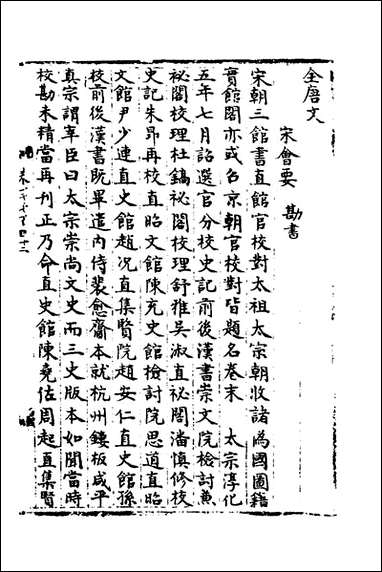 全唐文
宋會要 勘書
宋朝三館書直館官校對太祖太宗朝收諸僞國圖籍
實館閣亦或召京朝官校對皆題名卷末 太宗淳化
五年七月詔選官分校史記前後漢書崇文院檢討兼
祕閣校理杜鎬祕閣校理舒雅吳淑直祕閣潘慎修校
史記朱昂再校直昭文館陳充史館檢討阮思道直昭
文館尹少連直史館趙况直集賢院趙安仁直史館孫
校前後漢書既畢遣內侍裴愈齎本就杭州鏤板咸平
真宗謂宰臣曰太宗崇尚文史而三史版本如聞當時
校勘未精當再刊正乃命直史館陳堯佐周起直集賢